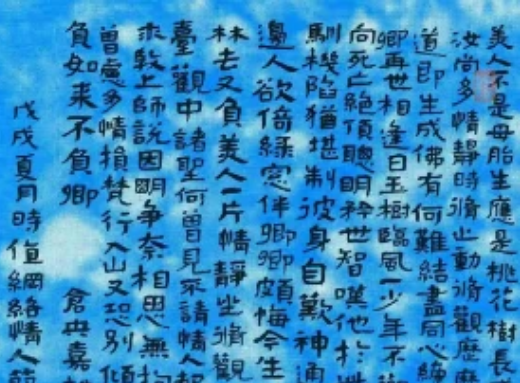 美人不是母胎生應是桃花樹長
汝尚多情靜時脩止動脩觀歷歷
道即生成佛有何難結盡同心締
卿再世相逢日玉樹臨風一少年不
向死亡絕頂聰明矜世智嘆他於
馴機陷猶堪制彼身自歎神通
邊人欲倚綠窓伴卿卿頗悔今生
林去又負美人一片情靜坐脩觀
臺觀中諸聖何曾見不請情人
求救上師說因明爭奈相思無拘
曾慮多情損梵行入山又恐別傾
負如来不負卿 倉央嘉
戊戌夏月時值網絡情人節